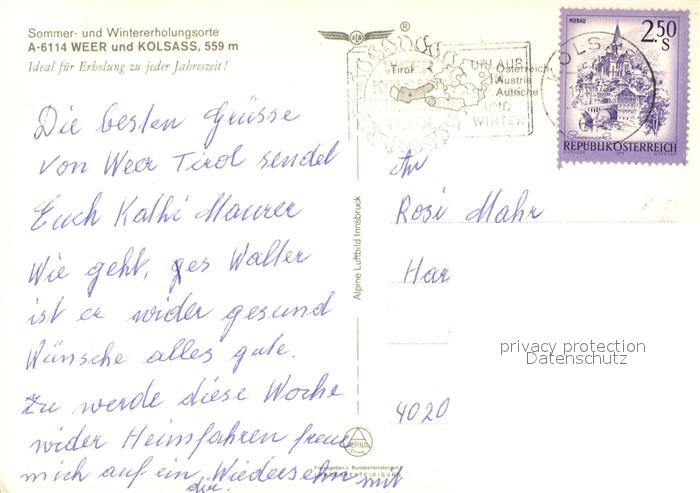 Sommer- und Wintererholungsorte
A-6114 WEER und KOLSASS, 559 m
Ideal für Erholung zu jeder Jahreszeit!
Die besten Grüsse
von Weer Tirol sendet
Euch Kathi Maurer
Wie geht, es Walter
ist er wider gesund
Wünsche alles gute.
Zu werde diese Woche
wider Heimfahren freue
mich auf ein Wiedersehn mit
dir.
Alpine Luftbild Innsbruck
ALPINE
®
Tirol
Österreich
Austria
Autriche
WEER
KOLSASS
TIROL
URLAUB
IM
UND
WINTER
KOLSASS
MURAU
2.50
S
REPUBLIK ÖSTERREICH
An
Rosi Mahr
Har
4020
privacy protection
Datenschutz